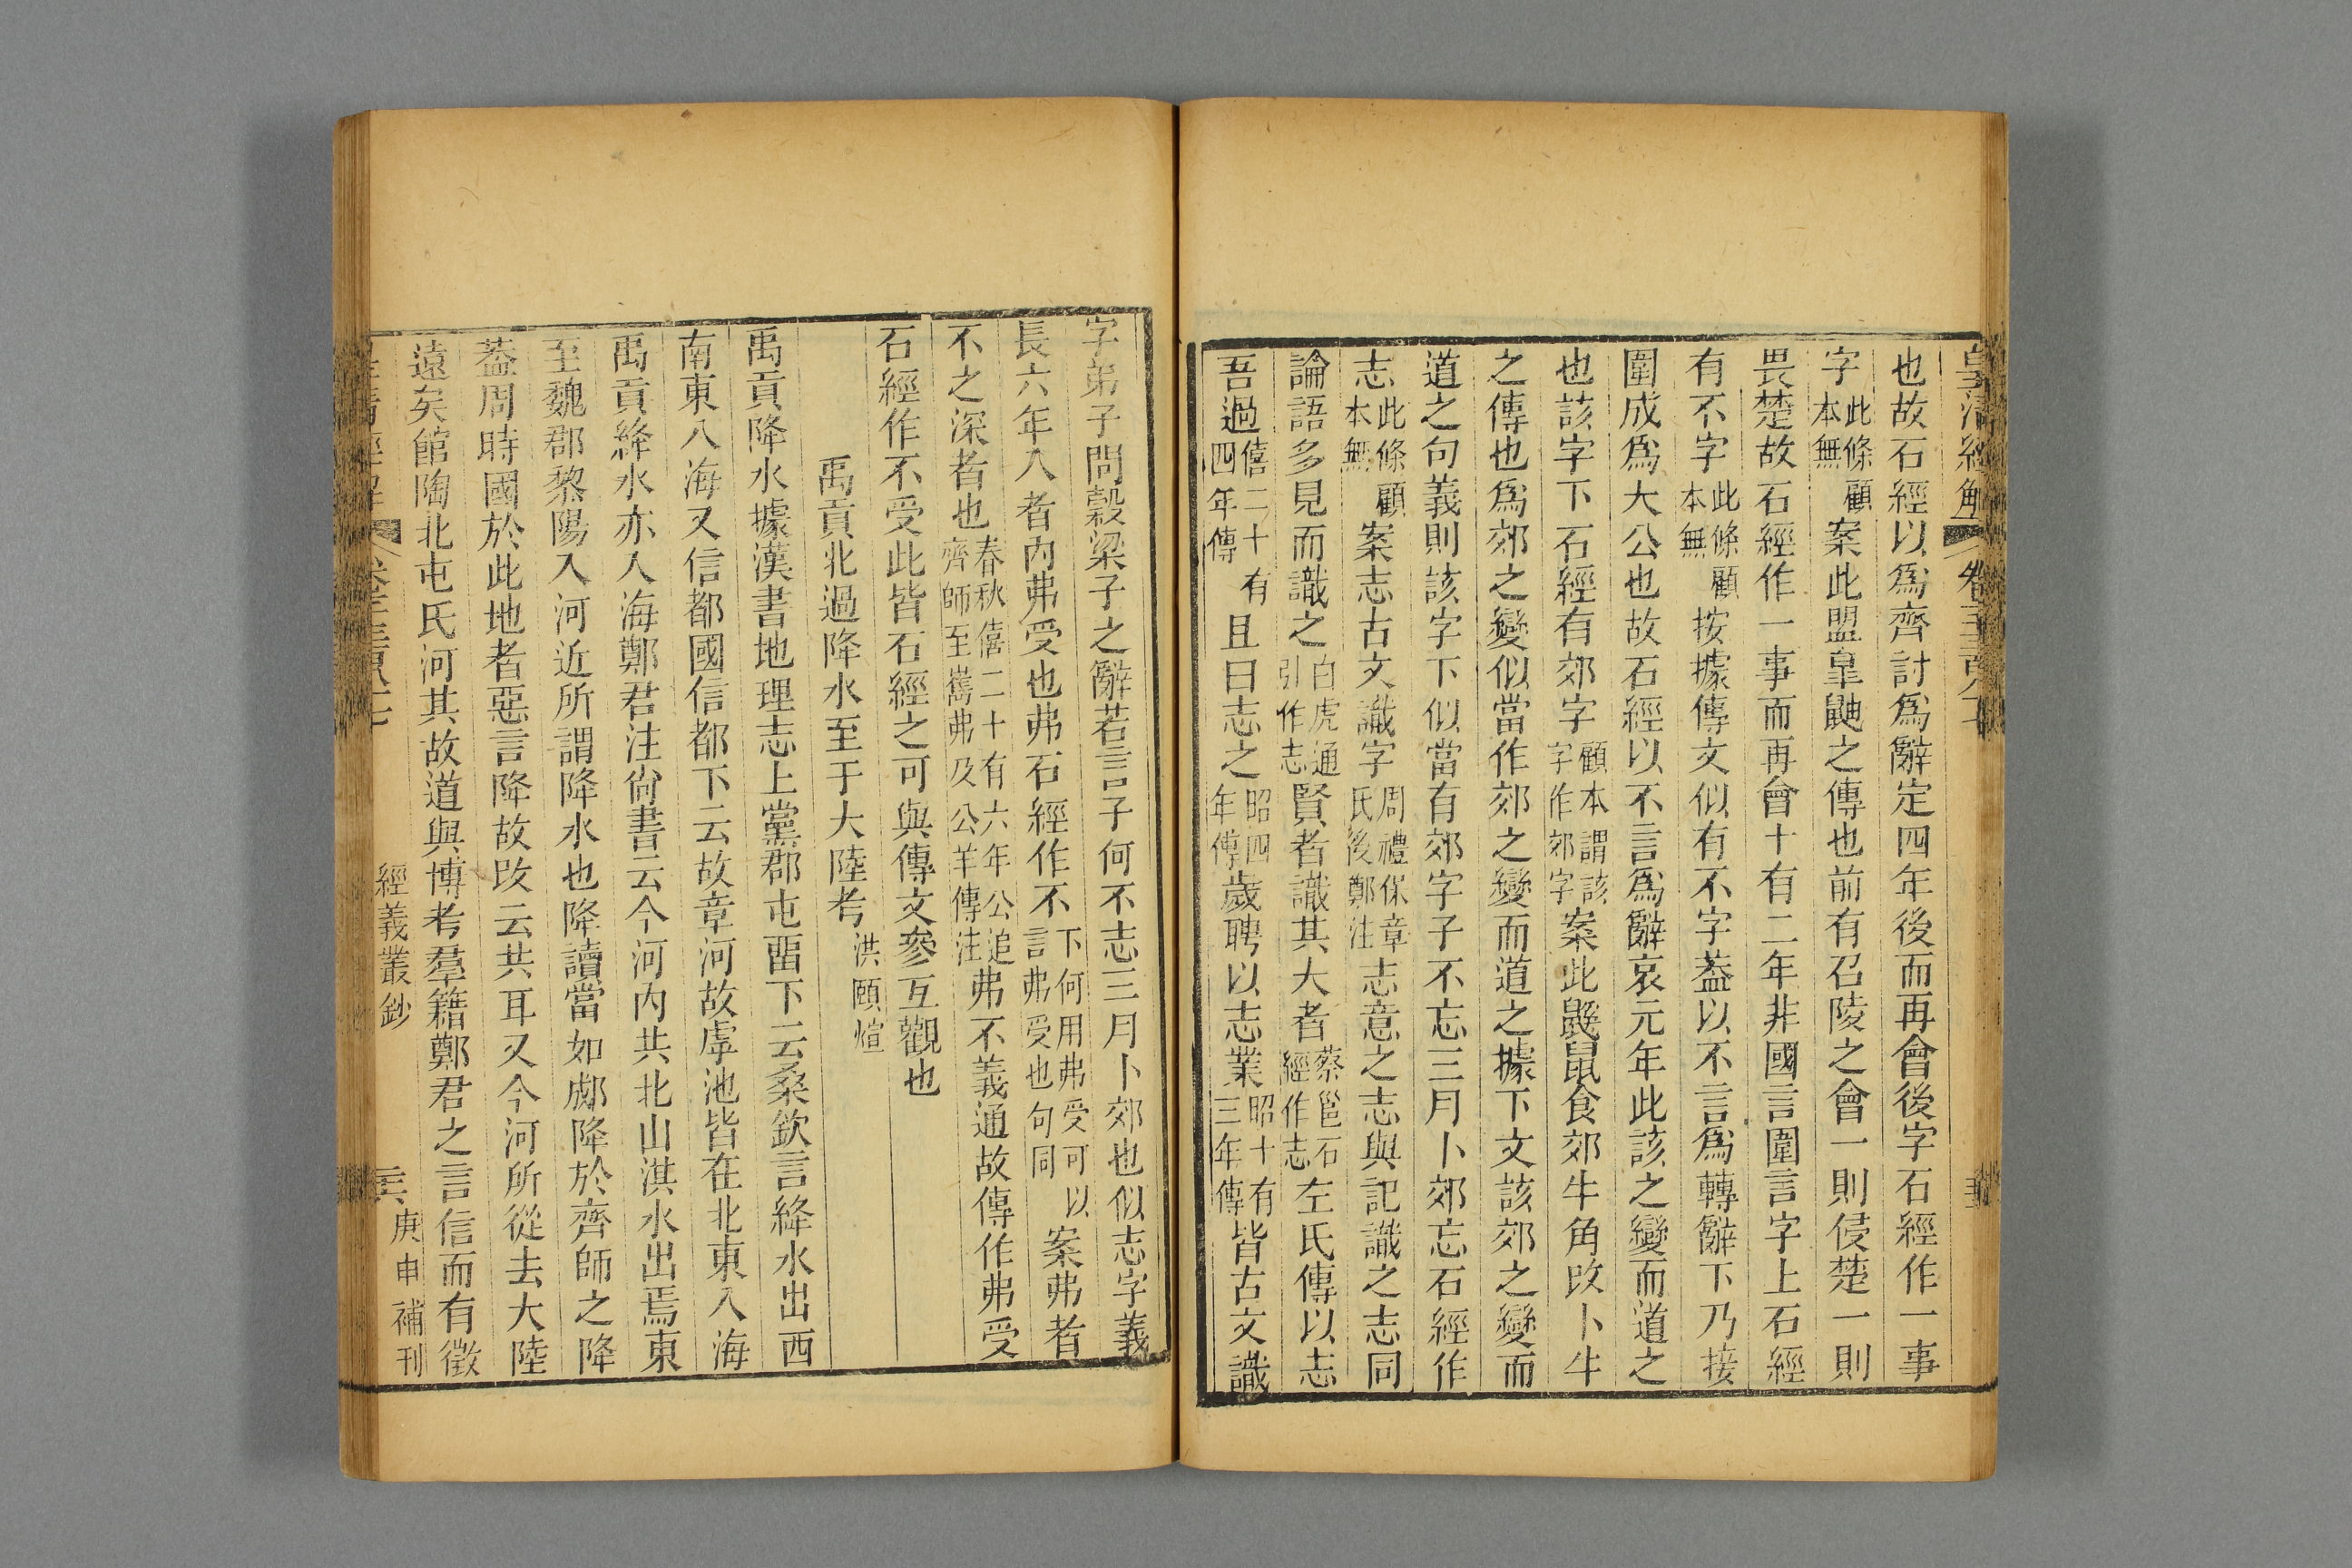 皇清經解
也故石經以爲齊討爲辭定四年後而再會後字石經作一事
字此條顧本無案此盟皐鼬之傳也前有召陵之會一則侵楚一則
畏楚故石經作一事而再會十有二年非國言圍言字上石經
有不字此條顧本無按據傳文似有不字葢以不言爲轉辭下乃接
圍成爲大公也故石經以不言爲辭哀元年此該之變而道之
也該字下石經有郊字顧本謂該字作郊字案此鼷鼠食郊牛角改卜牛
之傳也爲郊之變似當作郊之變而道之據下文該郊之變而
道之句義則該字下似當有郊字子不忘三月卜郊忘石經作
志此條顧本無案志古文識字周禮保章氏後鄭注志意之志與記識之志同
論語多見而識之白虎通引作志賢者識其大者蔡邕石經作志左氏傳以志
吾過僖二十有四年傳且曰志之昭四年傳歲聘以志業昭十有三年傳皆古文識
字弟子問穀梁子之辭若言子何不志三月卜郊也似志字義
長六年入者內弗受也弗石經作不下何用弗受可以言弗受也句同案弗者
不之深者也春秋僖二十有六年公追齊師至巂弗及公羊傳注弗不義通故傳作弗受
石經作不受此皆石經之可與傳文參互觀也
禹貢北過降水至于大陸考 洪頤煊
禹貢降水據漢書地理志上黨郡屯畱下云桑欽言絳水出西
南東入海又信都國信都下云故章河故虖池皆在北東入海
禹貢絳水亦入海鄭君注尙書云今河內共北山淇水出焉東
至魏郡黎陽入河近所謂降水也降讀當如郕降於齊師之降
葢周時國於此地者惡言降故改云共耳又今河所從去大陸
遠矣館陶北屯氏河其故道與博考羣籍鄭君之言信而有徵
經義叢鈔
庚申補刊